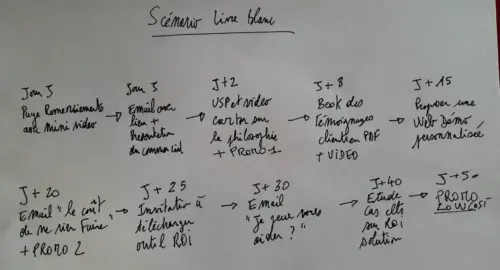 Scénario Livre blanc
Jour J
Page Remerciements
avec mini video
Jour J
Email avec
lien +
Présentation
du commercial
J+2
USP et video
cartoon sur
la philosophie
+ PROMO 1
J+8
Book des
témoignages
clients en PDF
+ VIDEO
J+15
Proposer une
Web Démo
personnalisée
J+20
Email "le coût
de ne rien faire"
+ PROMO 2
J+25
Invitation à
télécharger
outil ROI
J+30
Email
"Je peux vous
aider ?"
J+40
Etude
cas clts
sur ROI
solution
J+50
PROMO
LOWCOST